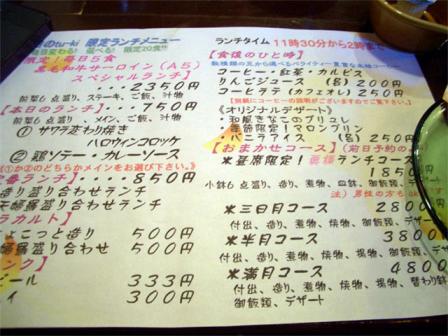 tu-ki 限定ランチメニュー
限定20食!!
限定!毎日5食
黒毛和牛サーロイン(A5)
スペシャルランチ】
・・・2350円
前菜6点盛り、ステーキ、ご飯、汁物
【本日のランチ】・・750円
前菜6点盛り、メイン、ご飯、汁物
① サワラ変わり焼き
ハロウィンコロッケ
② 鶏ソテー・カレーソース
①か②のどちらかメインをお選び下さい。
ランチ】・・・850円
造り盛り合わせランチ
天婦羅盛り合わせランチ
ラカルト】
よこっと造り 500円
婦羅盛り合わせ 500円
ンク】
ール 333円
イ 300円
ランチタイム 11時30分から2時まで
【食後のひと時】
コーヒー・紅茶・カルピス
りんごジュース (各) 200円
コーヒラテ(カフェオレ) 250円
《オリジナルデザート》
・和風きなこのブリュレ
・季節限定!マロンプリン
・バニラアイス (各) 250円
【おまかせコース】(前日予約の
*昼席限定!ランチコース
1850
小鉢6点盛り、造り、煮物、皿鉢、御飯類、デザ
注)男性の方も
*三日月コース 2800
付出、造り、煮物、焼物、御飯類、デザート
*半月コース 3800
付出、造り、煮物、焼物、揚物、
御飯類、デザー
*満月コース 4800
付出、造り、煮物、焼物、揚物、替わり鉢
御飯類、デザート